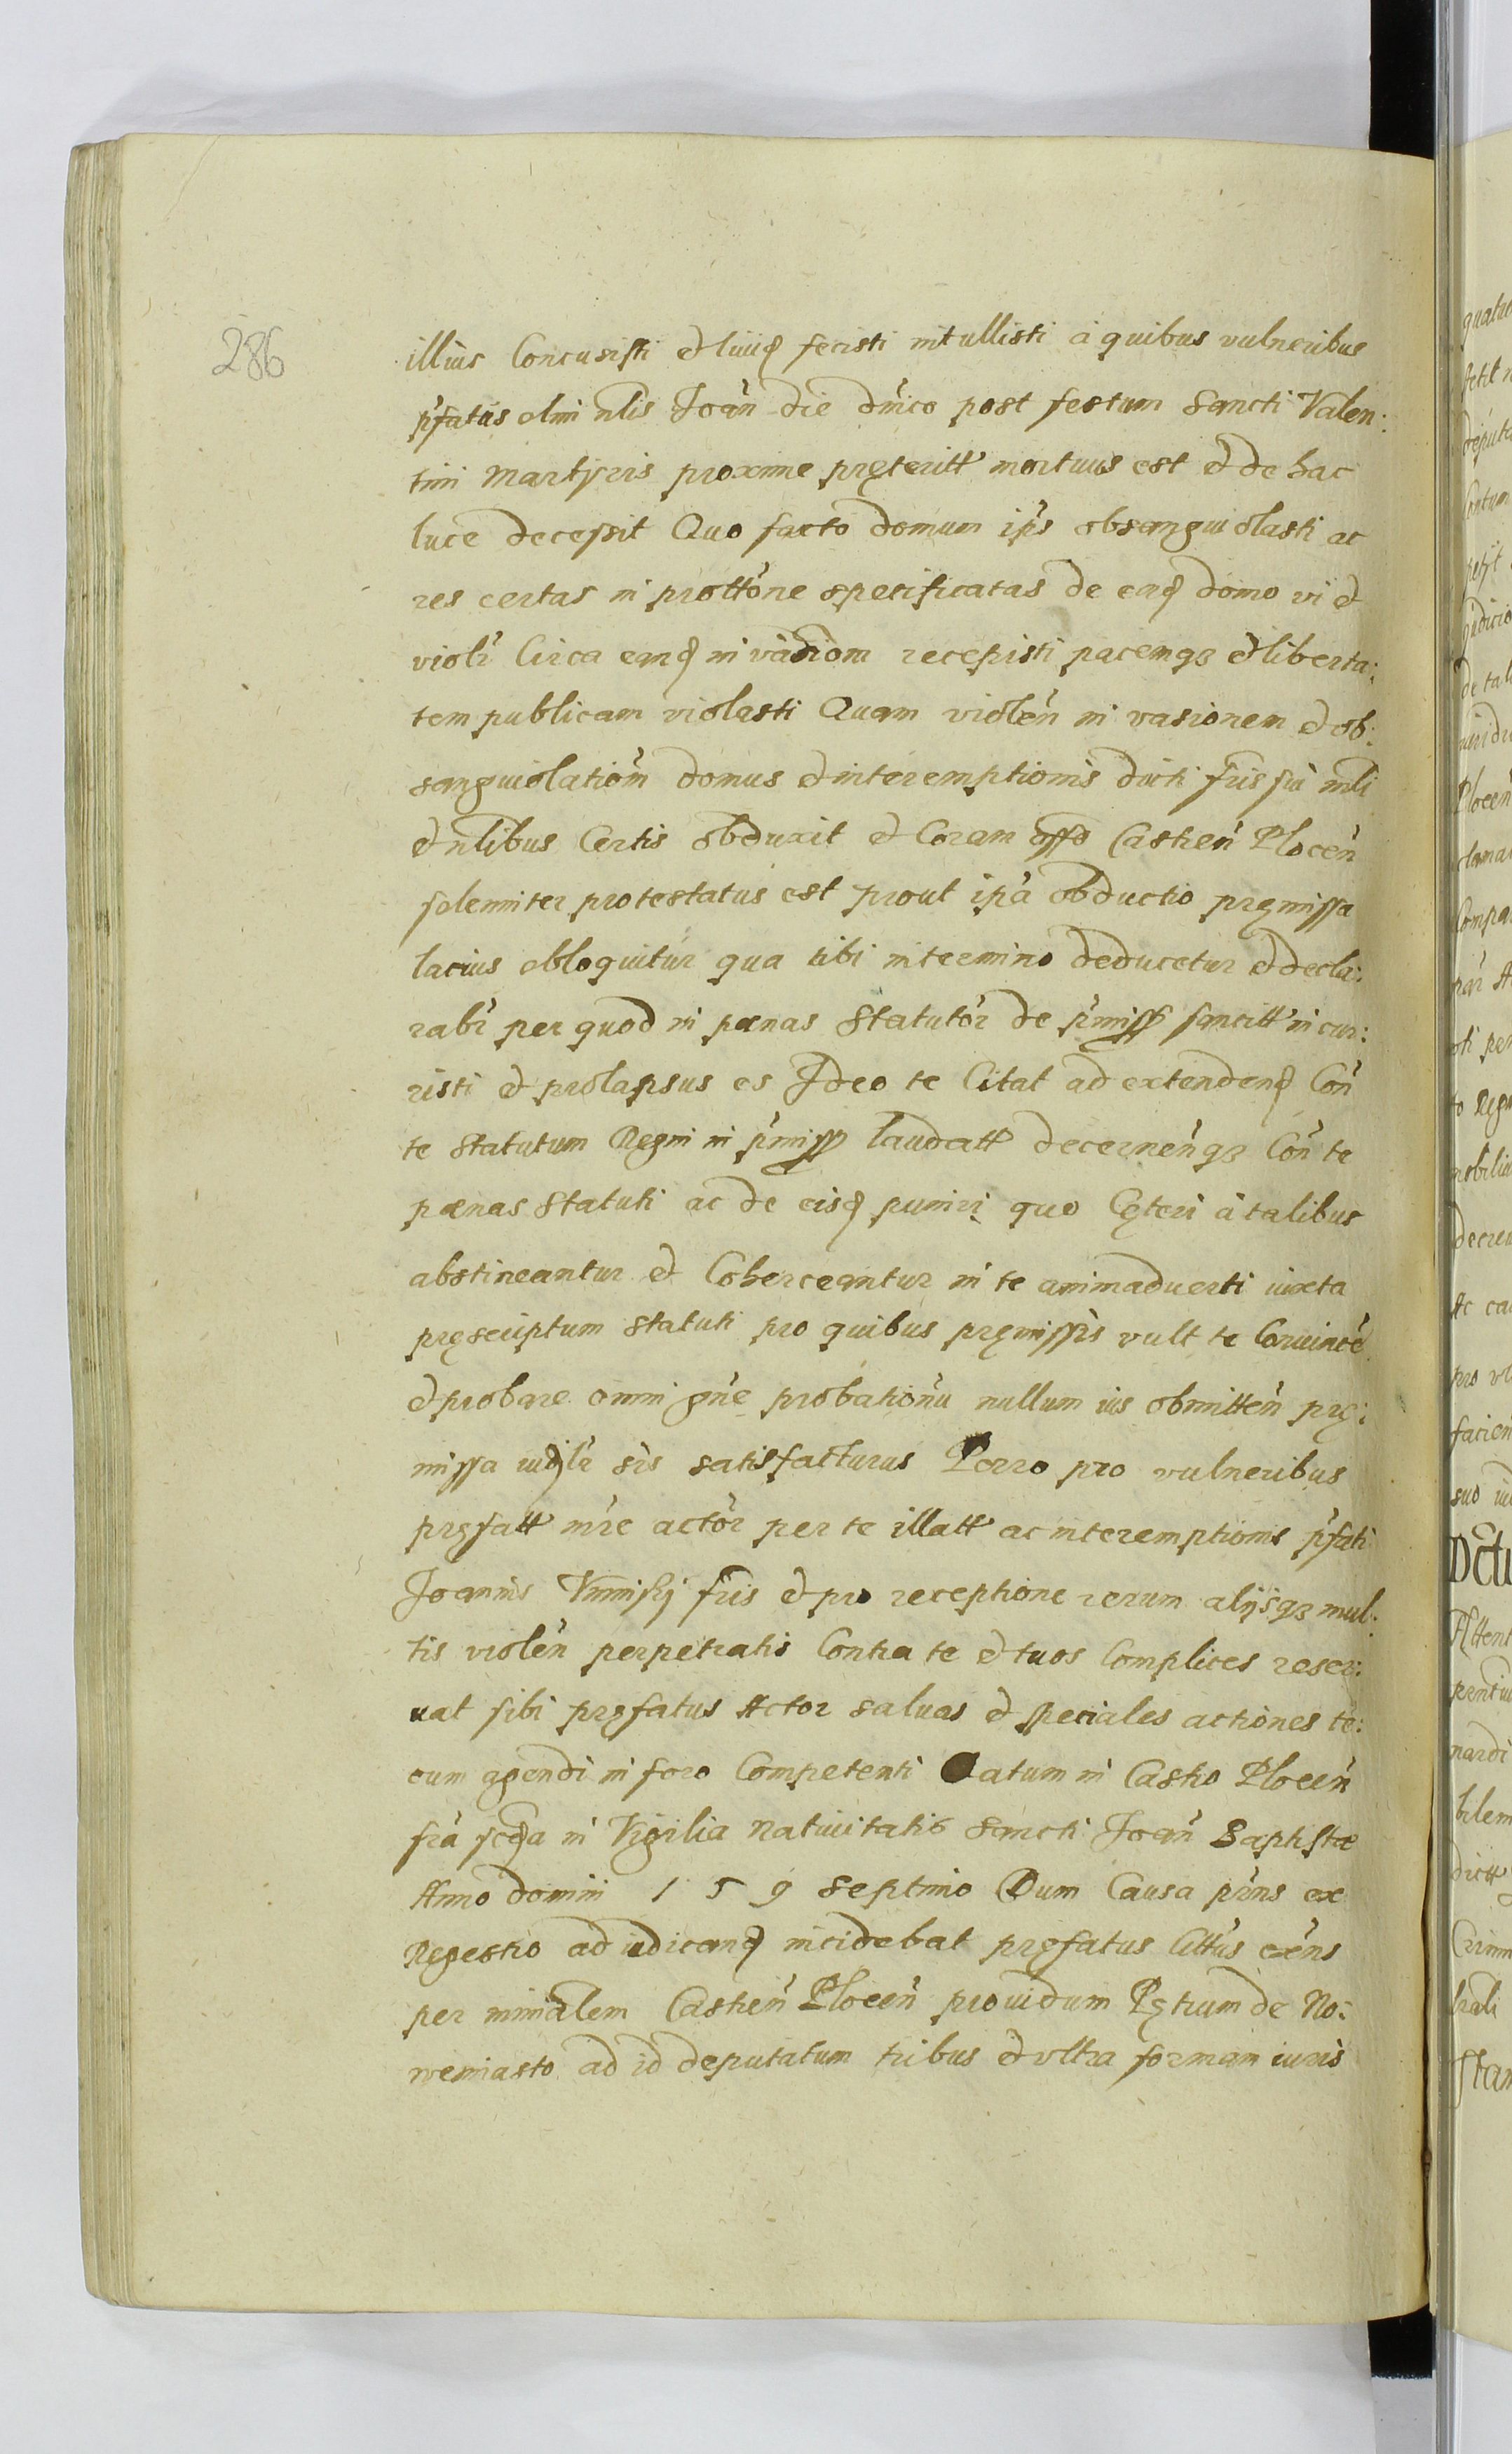 286
illius Concusisti et liuid fecisti intullisti a quibus vulneribus
pfatus olim nlis Joan̄ die dnico post festum Sancti Valen:
tini Martyris proxime pręteritt mortuus est et de hac
luce decessit Quo facto domum ips obsanguiolasti ac
res certas in prottone specificatas de ead domo vi et
violr Circa eand invadiom recepisti pacemq3 et liberta:
tem publicam violasti Quam violen in vasionem et ob:
sanguiolatiom domus et interemptionis dicti fris sui mli
et nlibus Certis obduxit et Coram offo Castren Plocen
solenniter protestatus est prout ipa obductio pręmissa
lacius obloquitur qua tibi intermino deducetur et decla:
rabr per quod in pœnas Statutor de pmiss sancitt in cur:
risti et prolapsus es Ideo te Citat ad extendend Con
te Statutum Regni in pmiss laudatt decernenq3 Con te
pœnas Statuti ac de eisd puniri quo Cęteri à talibus
abstineantur et Coherceantur in te animaduerti iuxta
pręscriptum Statuti pro quibus pręmissis vult te Conuince
et probare omni gne probationu nullum ius obmitten prę:
missa iudlr sis satisfacturus Porro pro vulneribus
pręfatt mre actor per te illatt ac interemptionis pfati
Joannis fris et pro receptione rerum alijsq3 mul:
tis violen perpetratis Contra te et tuos Complices reser:
uat sibi pręfatus Actor saluas et speciales actiones te:
cum agendi in foro Competenti Datum in Castro Plocen
fria scda in Vigilia Natiuitatis Sancti Joan Baptistæ
Anno domini 1 5 9 septimo Dum Causa prns ex
Regestro ad iudicand incidebat pręfatus Cittus exns
per minralem Castren Plocen prouidum Pętrum de No:
wemiasto ad id deputatum tribus et vltra formam iuris